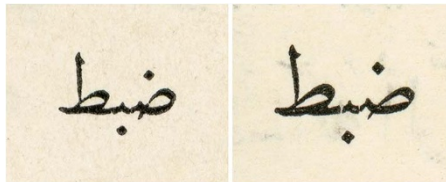 ضبط ضبط